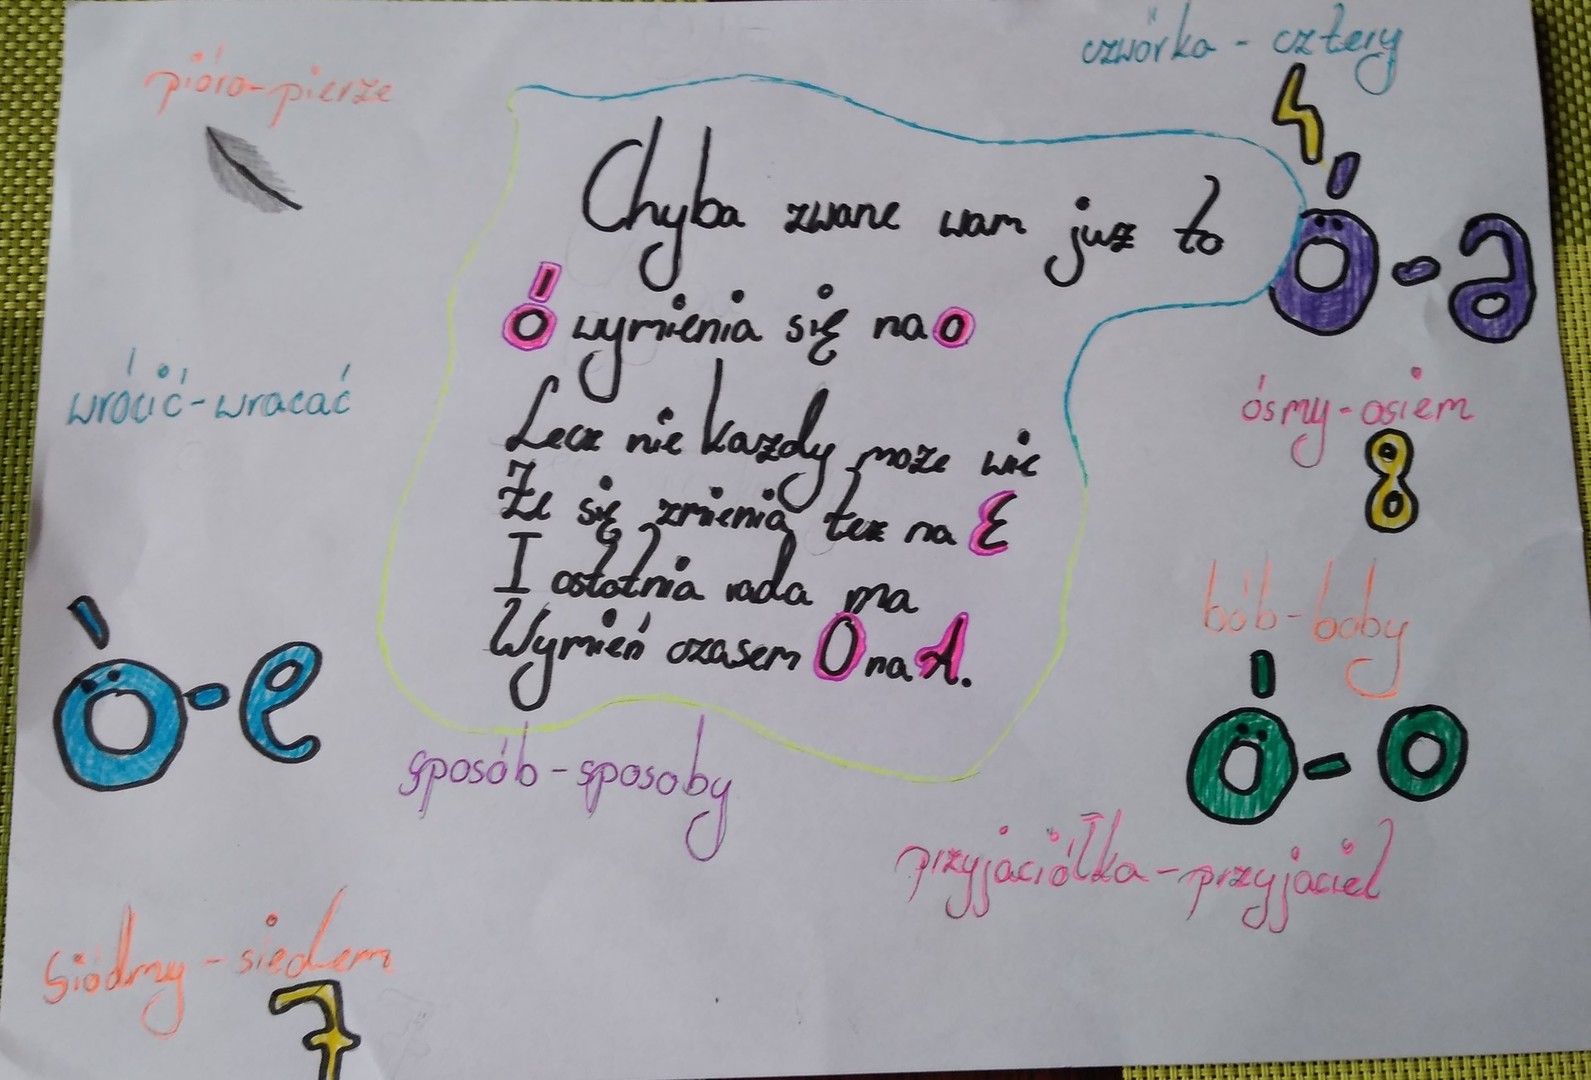 pióro-pierze
czwórka - cztery
4
Chyba zwane wam już to
ó wymienia się na o
Lecz nie każdy może wie
Że się zmienia też na E
I ostatnia rada ma
Wymień czasem Ó na A.
ó-a
wrócić-wracać
ósmy-osiem
8
bób-boby
ó-e
ó-o
sposób-sposoby
przyjaciółka-przyjaciel
siódmy-siedem
7